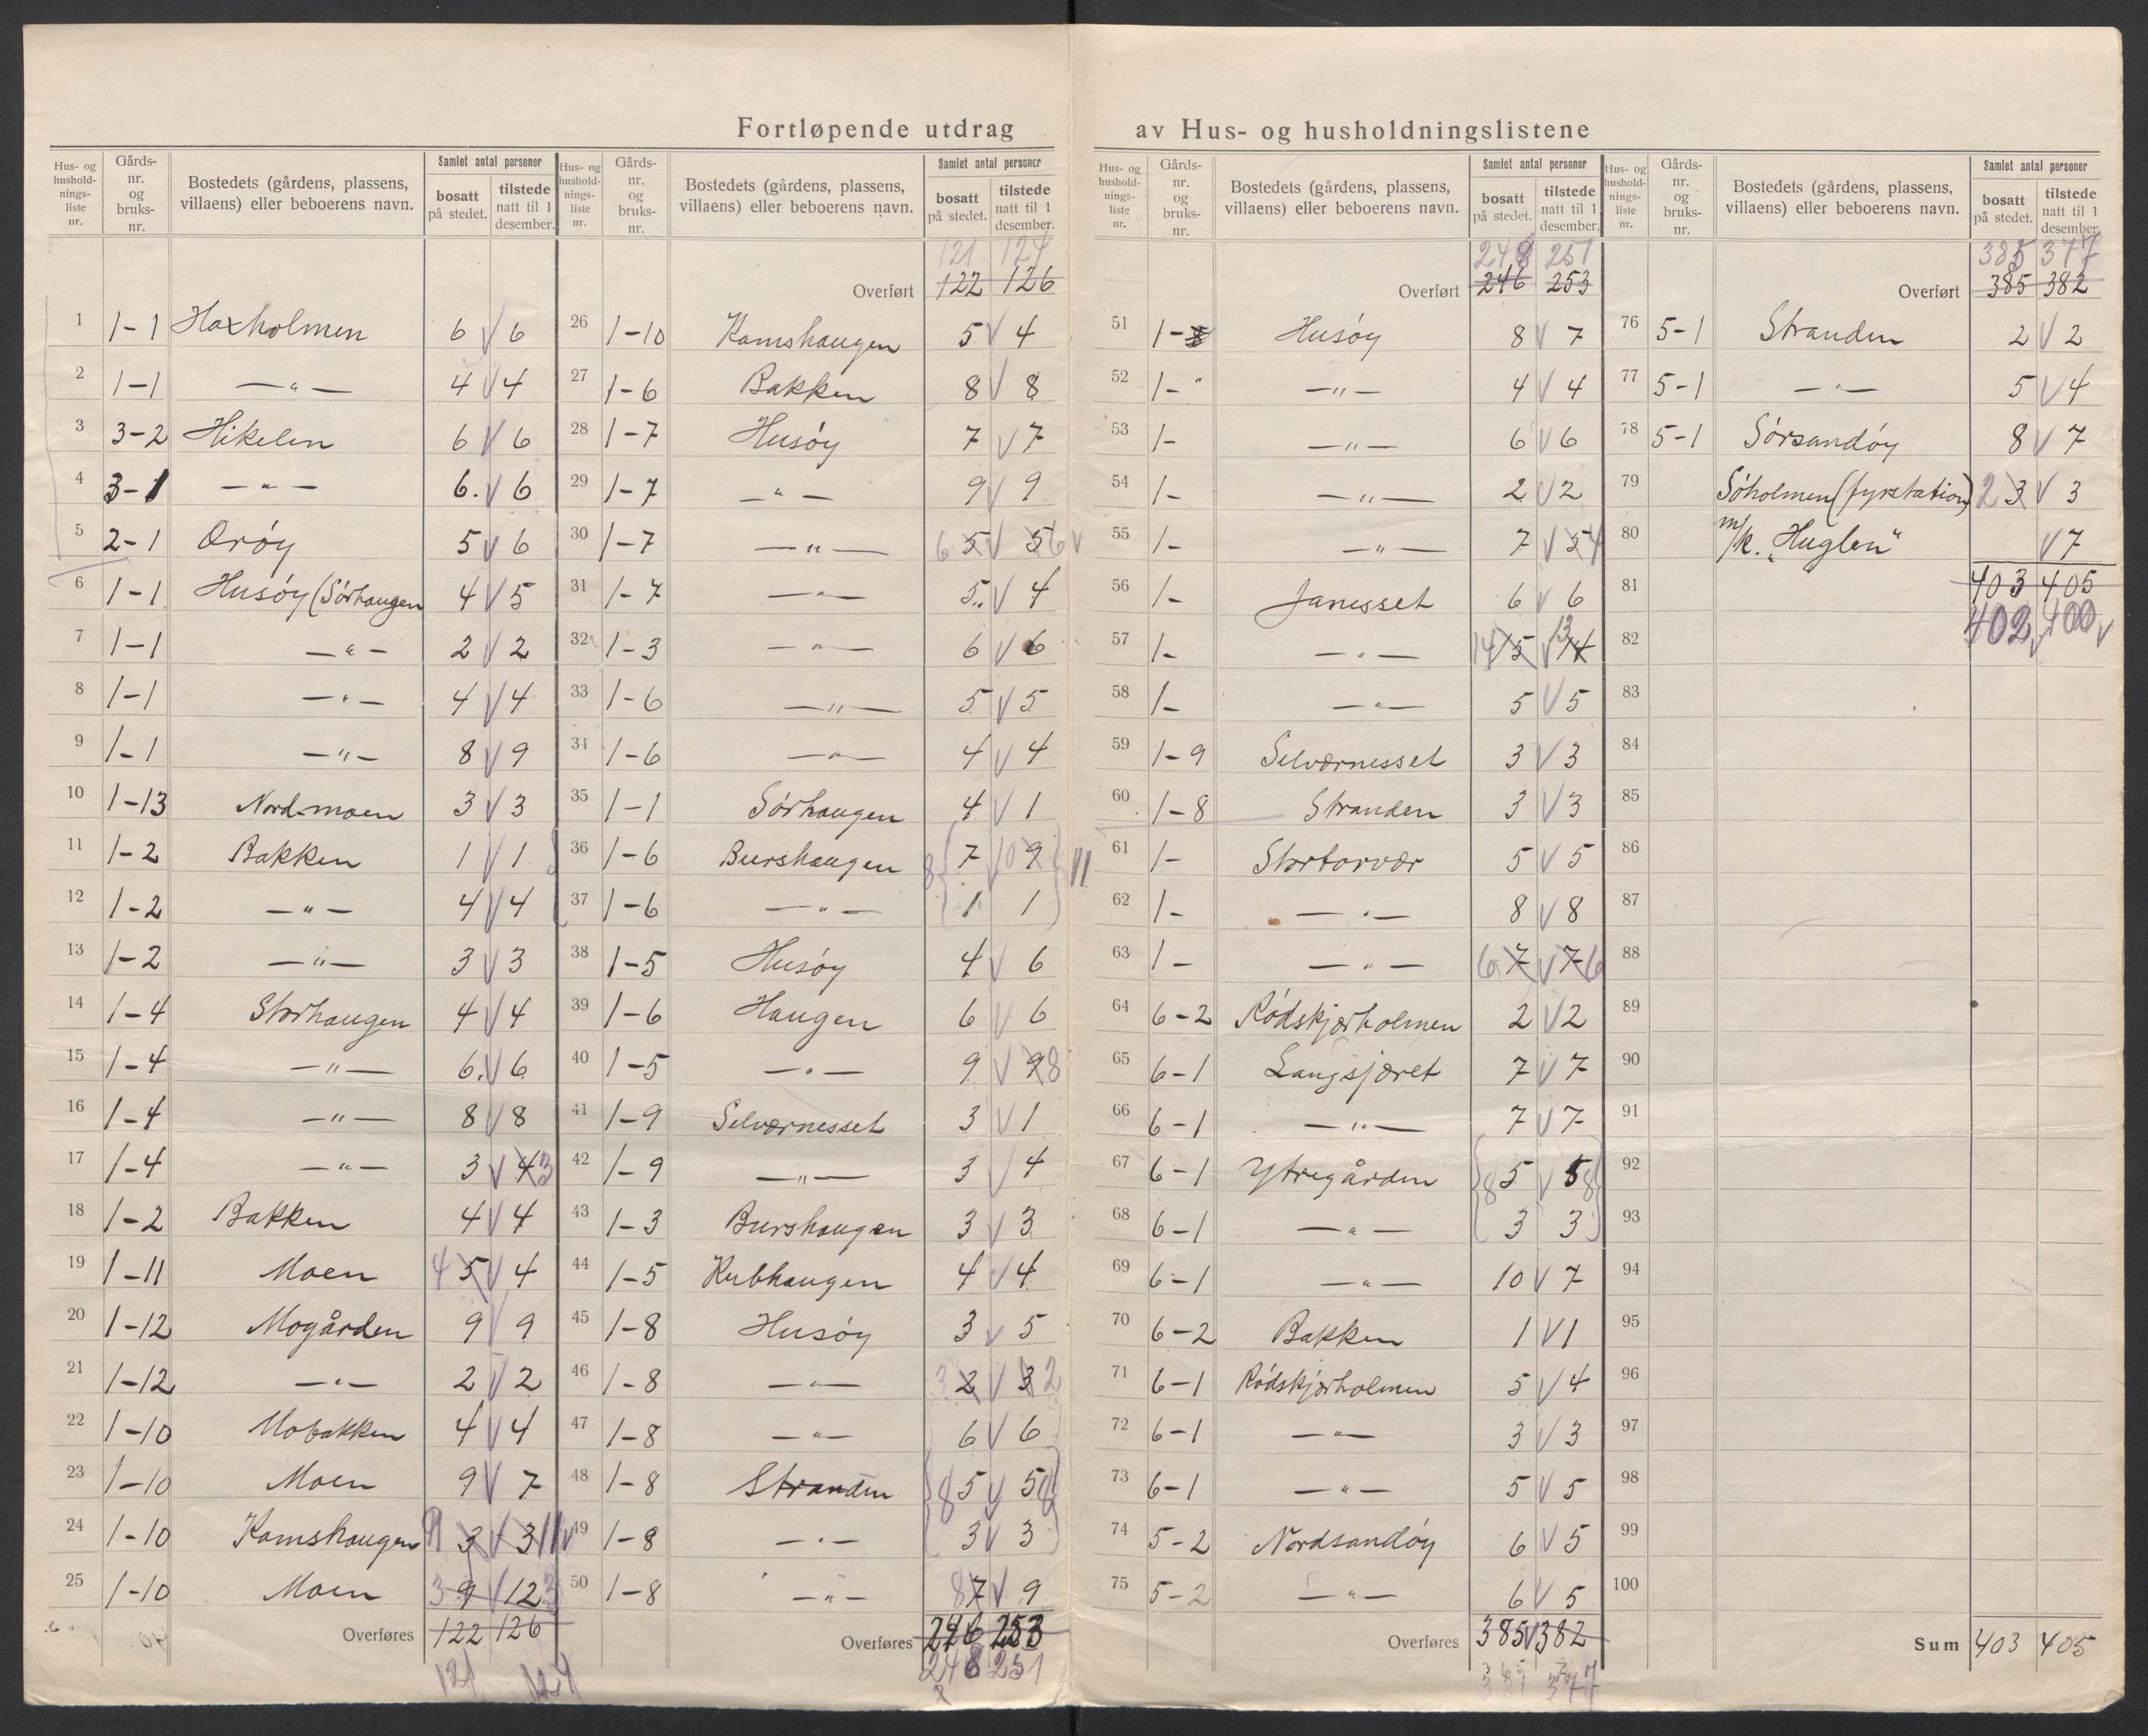 Fortløpende utdrag av Hus- og husholdningslistene
Hus- og hushold-nings-liste nr. | Gårds-nr. og bruks-nr. | Bostedets (gårdens, plassens, villaens) eller beboerens navn. | Samlet antal personer | bosatt på stedet. | tilstede natt til 1 desember.
1 1-1 Haxholmen 6 V 6
2 1-1 —„— 4 V 4
3 3-2 Hikelen 6 V 6
4 3-1 —„— 6. V 6
5 2-1 Orøy 5 V 6
6 1-1 Husøy (Sørhaugen 4 V 5
7 1-1 —„— 2 V 2
8 1-1 —„— 4 V 4
9 1-1 —„— 8 V 9
10 1-13 Nord-moen 3 V 3
11 1-2 Bakken 1 V 1
12 1-2 —„— 4 V 4
13 1-2 —„— 3 V 3
14 1-4 Storhaugen 4 V 4
15 1-4 —„— 6. V 6
16 1-4 —„— 8 V 8
17 1-4 —„— 3 V 4 3
18 1-2 Bakken 4 V 4
19 1-11 Moen 4 5 V 4
20 1-12 Mogården 9 V 9
21 1-12 —„— 2 V 2
22 1-10 Mobakken 4 V 4
23 1-10 Moen 9 V 7
24 1-10 Kamshaugen 9 3 V 3 11 V
25 1-10 Moen 3 9 V 12 3
Overføres 122 126
121 124
Hus- og hushold-nings-liste nr. | Gårds-nr. og bruks-nr. | Bostedets (gårdens, plassens, villaens) eller beboerens navn. | Samlet antal personer | bosatt på stedet. | tilstede natt til 1 desember.
121 124
Overført 122 126
26 1-10 Kamshaugen 5 V 4
27 1-6 Bakken 8 V 8
28 1-7 Husøy 7 V 7
29 1-7 —„— 9 V 9
30 1-7 —„— 6 5 V 5 6 V
31 1-7 —„— 5. V 4
32 1-3 —„— 6 V 6
33 1-6 —„— 5 V 5
34 1-6 —„— 4 V 4
35 1-1 Sørhaugen 4 V 1
36 1-6 Burshaugen 8 7 V 10 9 11
37 1-6 —„— 1 1
38 1-5 Husøy 4 V 6
39 1-6 Haugen 6 V 6
40 1-5 —„— 9 V 9 8
41 1-9 Selværnesset 3 V 1
42 1-9 —„— 3 V 4
43 1-3 Burshaugen 3 V 3
44 1-5 Kubhaugen 4 V 4
45 1-8 Husøy 3 V 5
46 1-8 —„— 3 2 V 3 2
47 1-8 —„— 6 V 6
48 1-8 Stranden 8 5 V 5 8
49 1-8 —„— 3 V 3
50 1-8 —„— 8 7 V 9
Overføres 246 253
248 251
Hus- og hushold-nings-liste nr. | Gårds-nr. og bruks-nr. | Bostedets (gårdens, plassens, villaens) eller beboerens navn. | Samlet antal personer | bosatt på stedet. | tilstede natt til 1 desember.
248 251
Overført 246 253
51 1-8 Husøy 8 V 7
52 1-" —„— 4 V 4
53 1- —„— 6 V 6
54 1- —„— 2 V 2
55 1- —„— 7 V 5 4
56 1- Janesset 6 V 6
57 1- —„— 14 15 V 13 14
58 1- —„— 5 V 5
59 1-9 Selværnesset 3 V 3
60 1-8 Stranden 3 V 3
61 1- Stortorvær 5 V 5
62 1- —„— 8 V 8
63 1- —„— 6. 7 V 7 6
64 6-2 Rødskjærholmen 2 V 2
65 6-1 Langsjæret 7 V 7
66 6-1 —„— 7 V 7
67 6-1 Ytregården 8 5 V 5 8
68 6-1 —„— 3 3
69 6-1 —„— 10 V 7
70 6-2 Bakken 1 V 1
71 6-1 Rødskjærholmen 5 V 4
72 6-1 —„— 3 V 3
73 6-1 —„— 5 V 5
74 5-2 Nordsandøy 6 V 5
75 5-2 —„— 6 V 5
Overføres 385 V 382
377
Hus- og hushold-nings-liste nr. | Gårds-nr. og bruks-nr. | Bostedets (gårdens, plassens, villaens) eller beboerens navn. | Samlet antal personer | bosatt på stedet. | tilstede natt til 1 desember.
385 377
Overført 385 382
76 5-1 Stranden 2 V 2
77 5-1 —„— 5 V 4
78 5-1 Sørsandøy 8 V 7
79 Søholmen (fyrstation) 2 3 V 3
80 m/k. „Huglen" V 7
403 405
81
402 V 400 V
82
83
84
85
86
87
88
89
90
91
92
93
94
95
96
97
98
99
100
Sum 403 405